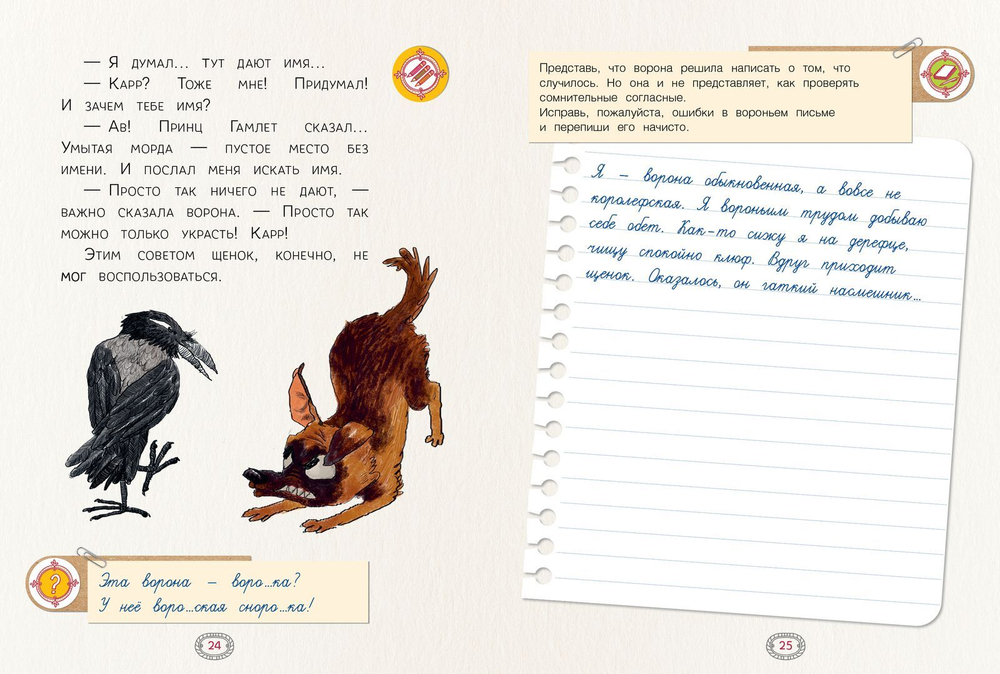 — Я думал... тут дают имя...
— Карр? Тоже мне! Придумал!
И зачем тебе имя?
— Ав! Принц Гамлет сказал...
Умытая морда — пустое место без
имени. И послал меня искать имя.
— Просто так ничего не дают, —
важно сказала ворона. — Просто так
можно только украсть! Карр!
Этим советом щенок, конечно, не
мог воспользоваться.
?
Эта ворона – воро...ка?
У неё воро...ская сноро...ка!
24
Представь, что ворона решила написать о том, что
случилось. Но она и не представляет, как проверять
сомнительные согласные.
Исправь, пожалуйста, ошибки в вороньем письме
и перепиши его начисто.
Я – ворона обыкновенная, а вовсе не
королефская. Я вороньим трудом добываю
себе обет. Как-то сижу я на дерефце,
чищу спокойно клюф. Вдруг приходит
щенок. Оказалось, он гаткий насмешник...
25